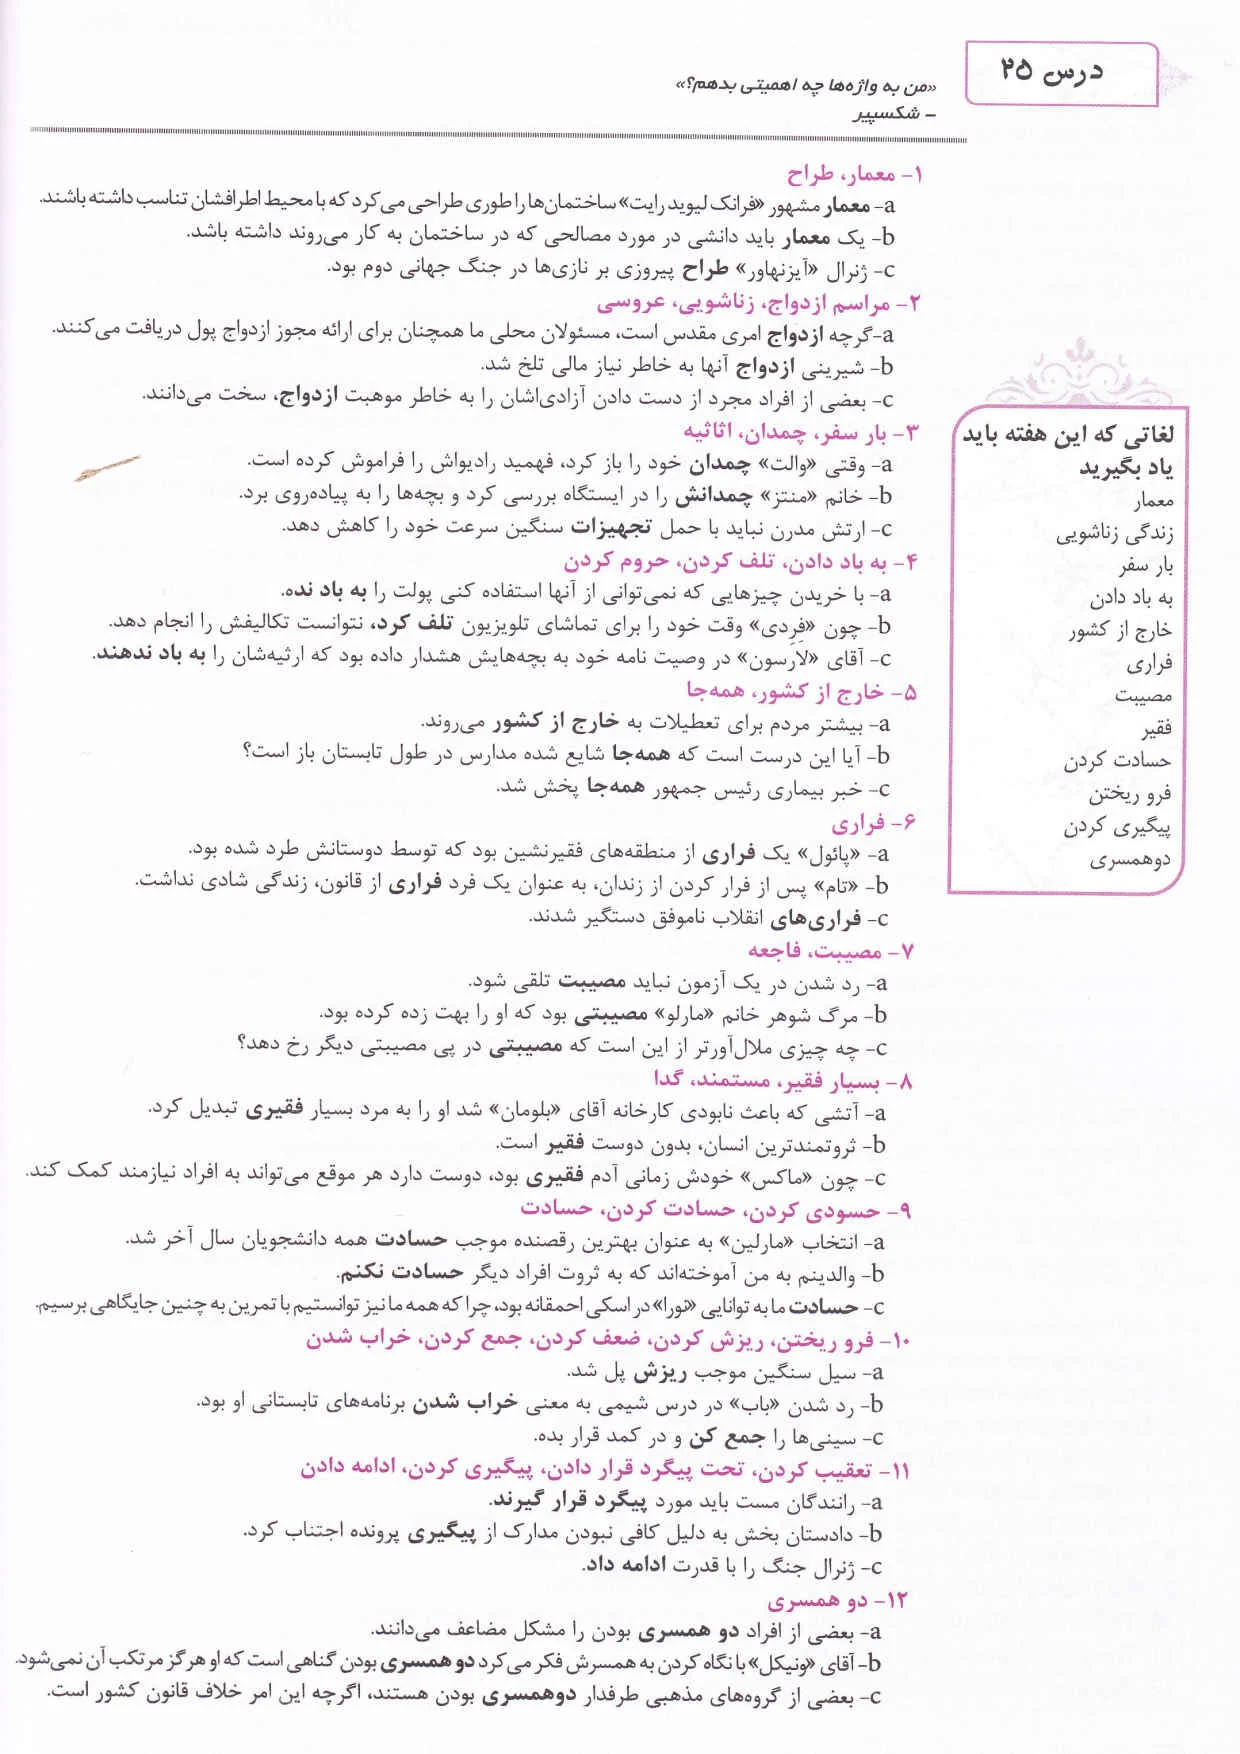 درس ۲۵
«من به واژه‌ها چه اهمیتی بدهم؟»
– شکسپیر
۱- معمار، طراح
a- معمار مشهور «فرانک لیوید رایت» ساختمان‌ها را طوری طراحی می‌کرد که با محیط اطرافشان تناسب داشته باشند.
b- یک معمار باید دانشی در مورد مصالحی که در ساختمان به کار می‌روند داشته باشد.
c- ژنرال «آیزنهاور» طراح پیروزی بر نازی‌ها در جنگ جهانی دوم بود.
۲- مراسم ازدواج، زناشویی، عروسی
a- گرچه ازدواج امری مقدس است، مسئولان محلی ما همچنان برای ارائه مجوز ازدواج پول دریافت می‌کنند.
b- شیرینی ازدواج آنها به خاطر نیاز مالی تلخ شد.
c- بعضی از افراد مجرد از دست دادن آزادی‌اشان را به خاطر موهبت ازدواج، سخت می‌دانند.
۳- بار سفر، چمدان، اثاثیه
a- وقتی «والت» چمدان خود را باز کرد، فهمید رادیواش را فراموش کرده است.
b- خانم «منتز» چمدانش را در ایستگاه بررسی کرد و بچه‌ها را به پیاده‌روی برد.
c- ارتش مدرن نباید با حمل تجهیزات سنگین سرعت خود را کاهش دهد.
۴- به باد دادن، تلف کردن، حروم کردن
a- با خریدن چیزهایی که نمی‌توانی از آنها استفاده کنی پولت را به باد نده.
b- چون «فِردِی» وقت خود را برای تماشای تلویزیون تلف کرد، نتوانست تکالیفش را انجام دهد.
c- آقای «لارسون» در وصیت نامه خود به بچه‌هایش هشدار داده بود که ارثیه‌شان را به باد ندهند.
۵- خارج از کشور، همه‌جا
a- بیشتر مردم برای تعطیلات به خارج از کشور می‌روند.
b- آیا این درست است که همه‌جا شایع شده مدارس در طول تابستان باز است؟
c- خبر بیماری رئیس جمهور همه‌جا پخش شد.
۶- فراری
a- «پائول» یک فراری از منطقه‌های فقیرنشین بود که توسط دوستانش طرد شده بود.
b- «تام» پس از فرار کردن از زندان، به عنوان یک فرد فراری از قانون، زندگی شادی نداشت.
c- فراری‌های انقلاب ناموفق دستگیر شدند.
۷- مصیبت، فاجعه
a- رد شدن در یک آزمون نباید مصیبت تلقی شود.
b- مرگ شوهر خانم «مارلو» مصیبتی بود که او را بهت زده کرده بود.
c- چه چیزی ملال‌آورتر از این است که مصیبتی در پی مصیبتی دیگر رخ دهد؟
۸- بسیار فقیر، مستمند، گدا
a- آتشی که باعث نابودی کارخانه آقای «بلومان» شد او را به مرد بسیار فقیری تبدیل کرد.
b- ثروتمندترین انسان، بدون دوست فقیر است.
c- چون «ماکس» خودش زمانی آدم فقیری بود، دوست دارد هر موقع می‌تواند به افراد نیازمند کمک کند.
۹- حسودی کردن، حسادت کردن، حسادت
a- انتخاب «مارلین» به عنوان بهترین رقصنده موجب حسادت همه دانشجویان سال آخر شد.
b- والدینم به من آموخته‌اند که به ثروت افراد دیگر حسادت نکنم.
c- حسادت ما به توانایی «نورا» در اسکی احمقانه بود، چرا که همه ما نیز توانستیم با تمرین به چنین جایگاهی برسیم.
۱۰- فرو ریختن، ریزش کردن، ضعف کردن، جمع کردن، خراب شدن
a- سیل سنگین موجب ریزش پل شد.
b- رد شدن «باب» در درس شیمی به معنی خراب شدن برنامه‌های تابستانی او بود.
c- سینی‌ها را جمع کن و در کمد قرار بده.
۱۱- تعقیب کردن، تحت پیگرد قرار دادن، پیگیری کردن، ادامه دادن
a- رانندگان مست باید مورد پیگرد قرار گیرند.
b- دادستان بخش به دلیل کافی نبودن مدارک از پیگیری پرونده اجتناب کرد.
c- ژنرال جنگ را با قدرت ادامه داد.
۱۲- دو همسری
a- بعضی از افراد دو همسری بودن را مشکل مضاعف می‌دانند.
b- آقای «ونیکل» با نگاه کردن به همسرش فکر می‌کرد دو همسری بودن گناهی است که او هرگز مرتکب آن نمی‌شود.
c- بعضی از گروه‌های مذهبی طرفدار دوهمسری بودن هستند، اگرچه این امر خلاف قانون کشور است.
لغاتی که این هفته باید
یاد بگیرید
معمار
زندگی زناشویی
بار سفر
به باد دادن
خارج از کشور
فراری
مصیبت
فقیر
حسادت کردن
فرو ریختن
پیگیری کردن
دوهمسری